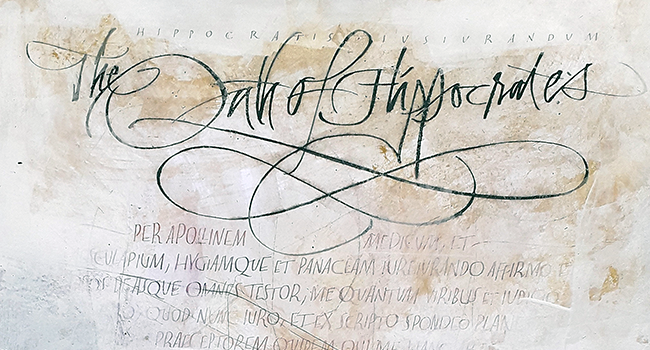 HIPPOCRATIS IUSIURANDUM
The Oath of Hippocrates
PER APOLLINEM MEDICUM, ET
SCULAPIUM, HYGIAMQUE ET PANACEAM IUREIURANDO AFFIRMO E
DEASQUE OMNES TESTOR, ME QUANTUM VIRIBUS ET IUDICIO
QUOD NUNC IURO, ET EX SCRIPTO SPONDEO PLAN
PRAECEPTOREM QUIDEM QUI ME HANC